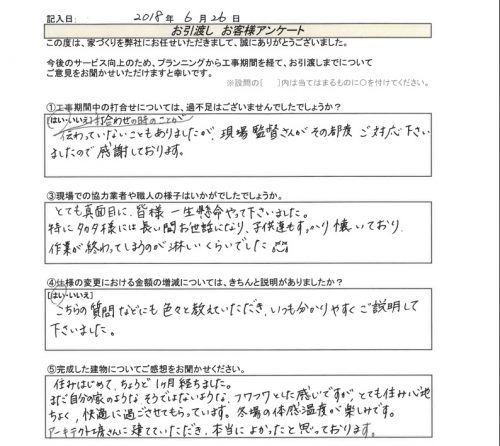 記入日: 2018年 6月 26日
お引渡し お客様アンケート
この度は、家づくりを弊社にお任せいただきまして、誠にありがとうございました。
今後のサービス向上のため、プランニングから工事期間を経て、お引渡しまでについて
ご意見をお聞かせいただけますと幸いです。
※設問の[ ]内は当てはまるものに○を付けてください。
①工事期間中の打合せについては、過不足はございませんでしたでしょうか?
[はい・いいえ] 打合わせの時のことが
伝わっていないこともありましたが、現場監督さんがその都度ご対応下さい
ましたので感謝しております。
③現場での協力業者や職人の様子はいかがでしたでしょうか。
とても真面目に、皆様一生懸命やって下さいました。
特にタカタ様には長い間お世話になり、子供達もすっかり懐いており
作業が終わってしまうのが淋しいくらいでした
④仕様の変更における金額の増減については、きちんと説明がありましたか?
[はい・いいえ]
こちらの質問などにも色々と教えていただき、いつも分かりやすくご説明して
下さいました。
⑤完成した建物についてご感想をお聞かせください。
住みはじめて、ちょうど1ヶ月経ちました。
まだ自分の家のような、そうではないような、フワフワとした感じですが、とても住み心地
ちよく、快適に過ごさせてもらっています。冬場の体感温度が楽しみです。
アーキテクト工房さんに建てていただき、本当によかったと思っております。